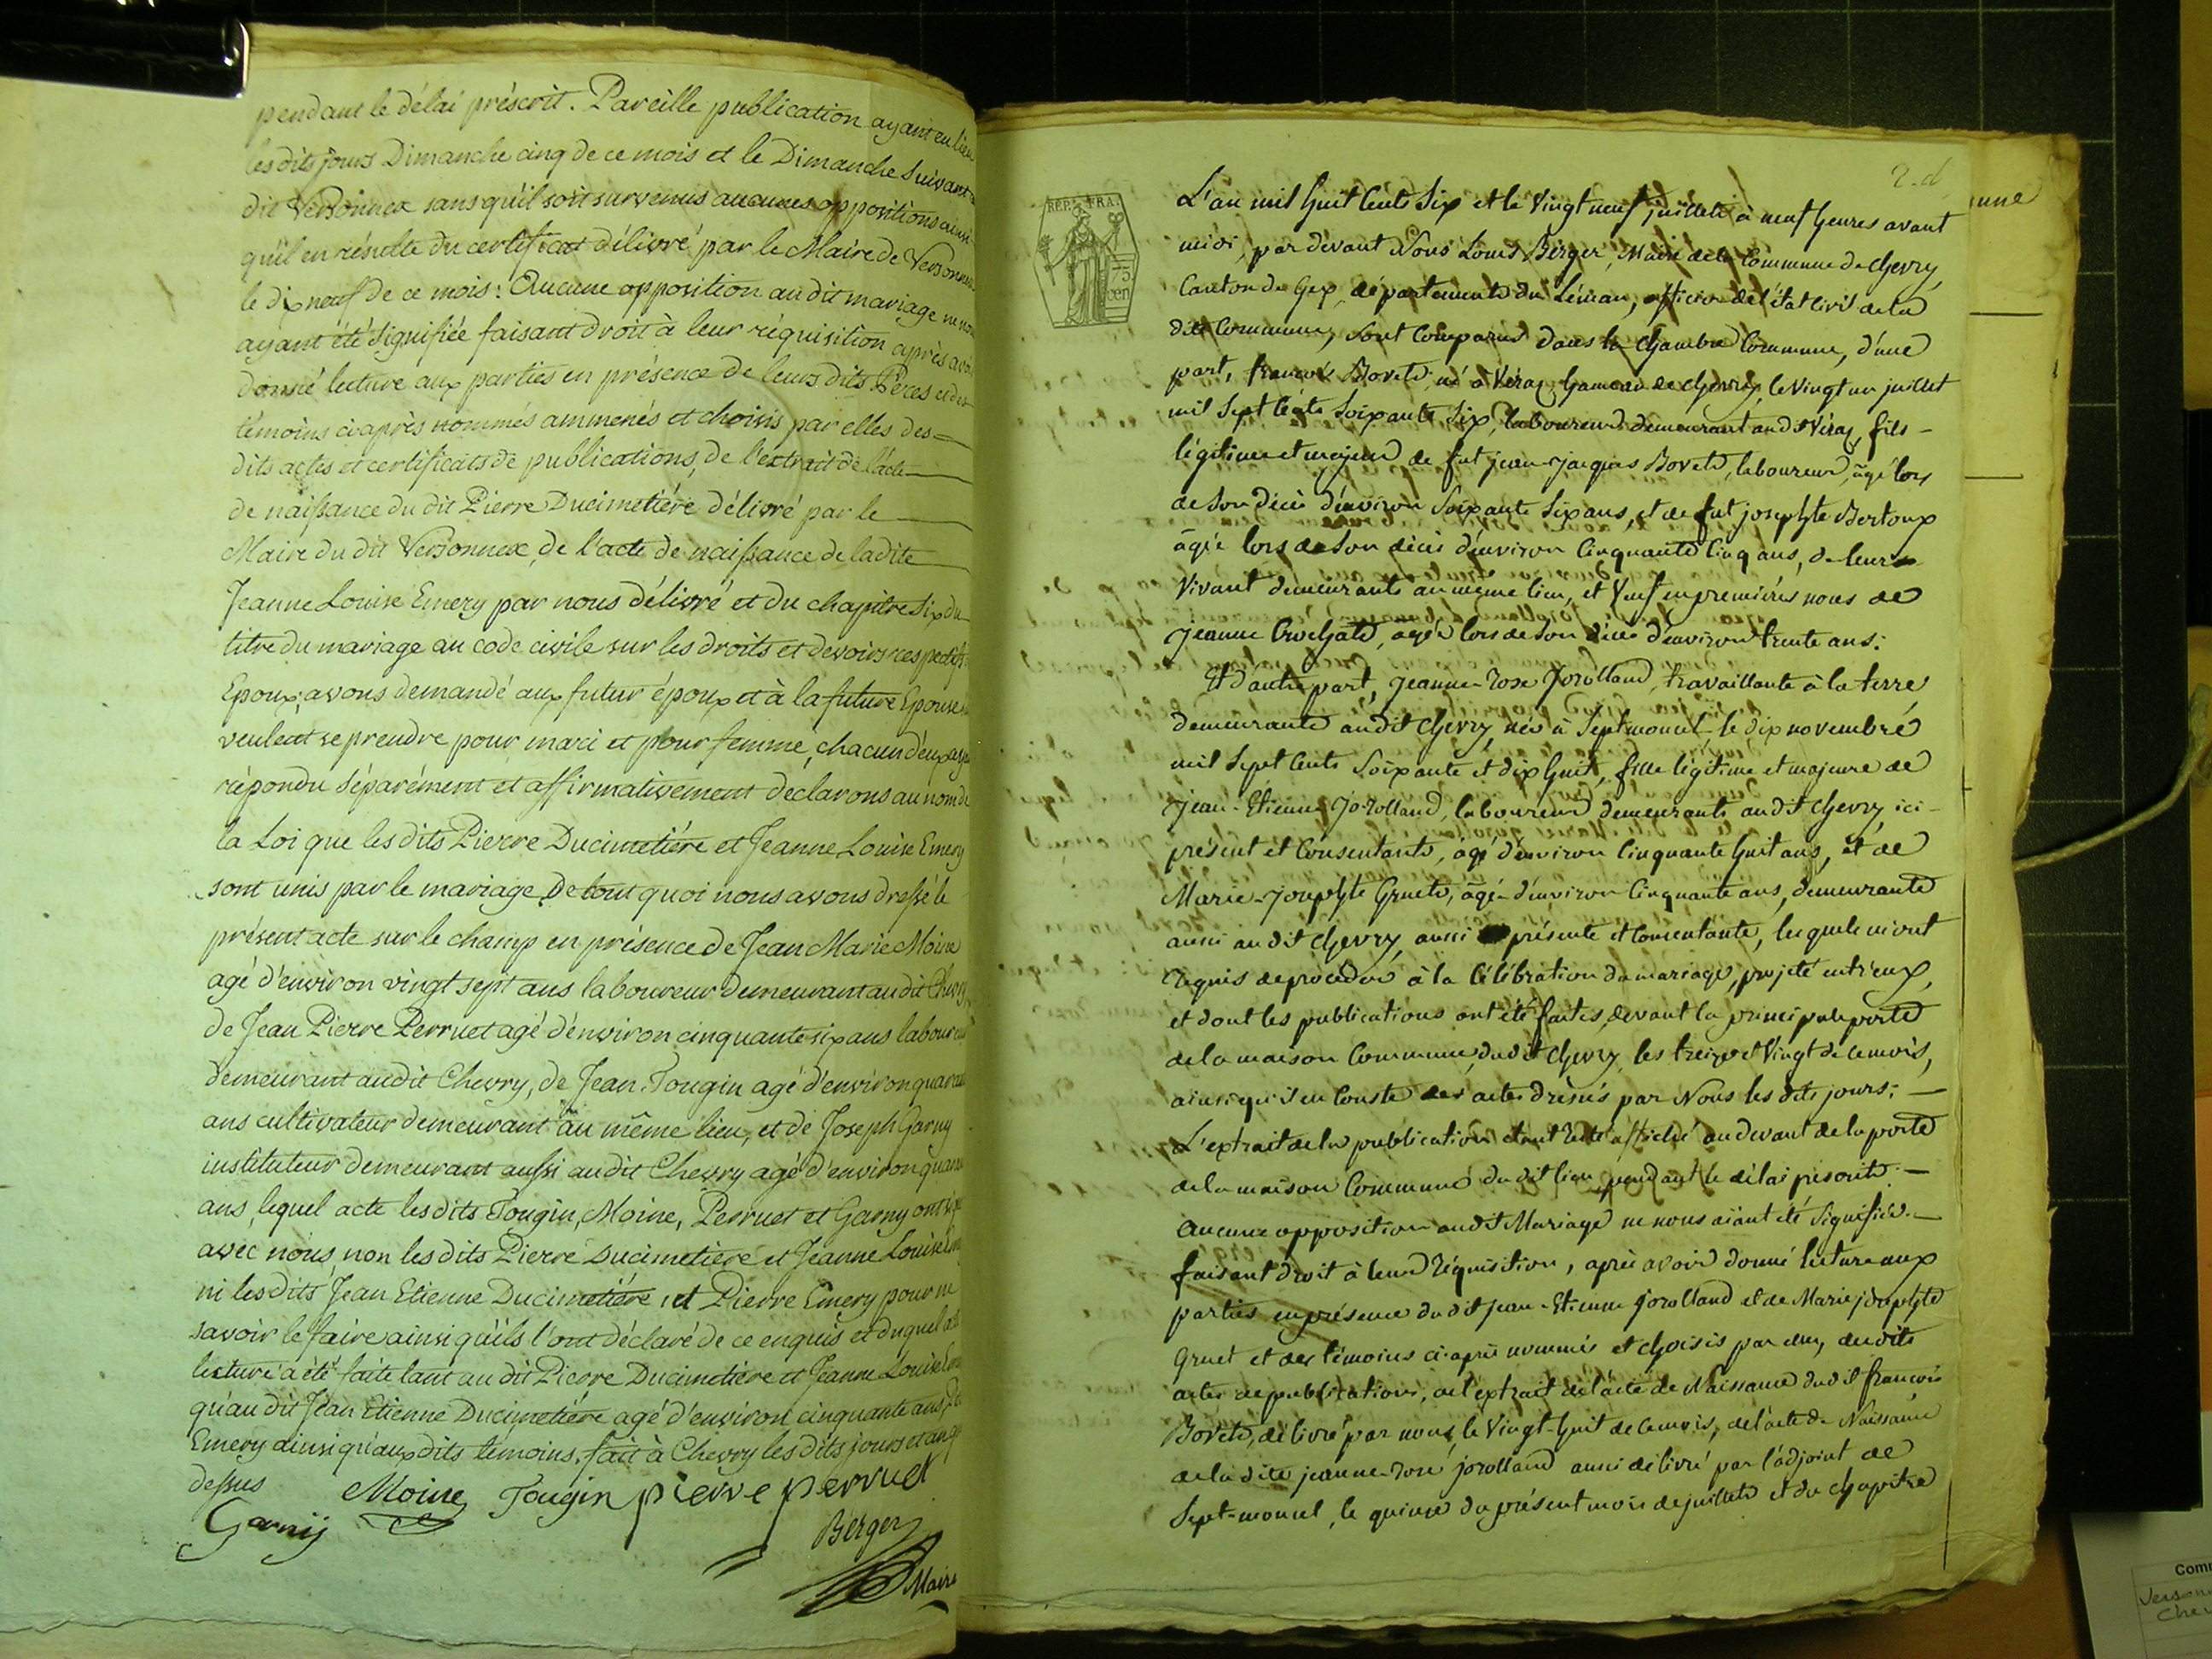 pendant le délai préscrit. Pareille publication ayant eu lieu
les dits jours Dimanche cinq de ce mois et le Dimanche suivant
dit Versonnex sans qu'il soit survenus aucunes oppositions ainsi
qu'il en résulte du certificat délivré par le Maire de Versonnex
le dix neuf de ce mois: Aucune opposition au dit mariage ne nous
ayant été signifiée faisant droit à leur réquisition après avoir
donné lecture aux parties en présence de leurs dits Pères et des
témoins ci après nommés ammenés et choisis par elles des
dits actes et certificats de publications, de l'extrait de l'acte
de naissance du dit Pierre Ducimetiére délivré par le
Maire du dit Versonnex, de l'acte de naissance de ladite
Jeanne Louise Emery par nous délivré et du chapitre six du
titre du mariage au code civile sur les droits et devoirs respectifs
Epoux; avons demandé aux futur époux et à la future Epouse
veulent se prendre pour mari et pour femme, chacun d'eux ayant
répondu séparément et affirmativement declarons au nom de
la Loi que les dits Pierre Ducimetiére et Jeanne Louise Emery
sont unis par le mariage. De tout quoi nous avons dressé le
présent acte sur le champ en présence de Jean Marie Moine
agé d'environ vingt sept ans laboureur demeurant au dit Chevry
de Jean Pierre Perruet agé d'environ cinquante six ans laboureur
demeurant audit Chevry, de Jean Tougin agé d'environ quarante
ans cultivateur demeurant au même lieu, et de Joseph Garny
instituteur demeurant aussi au dit Chevry agé d'environ quarante
ans, lequel acte les dits Tougin, Moine, Perruet et Garny ont signé
avec nous, non les dits Pierre Ducimetiere et Jeanne Louise Emery
ni les dits Jean Etienne Ducimetiére, et Pierre Emery pour ne
savoir le faire ainsi qu'ils l'ont déclaré de ce enquis et duquel acte
lecture a été faite tant au dit Pierre Ducimetiére et Jeanne Louise Emery
qu'au dit Jean Etienne Ducimetiére agé d'environ cinquante ans,
Emery ainsi qu'aux dits témoins. fait à Chevry les dits jours et an que
dessus Moine Tougin pierre perruet
Garnij Berger
Maire
2.d
REP. FRA.
75
cen
L'an mil huit cents six et le vingt neuf juillet à neuf heures avant
midi, par devant Nous Louis Berger, Maire de la Commune de Chevry,
Canton de Gex, département du Léman, officier de l'état civil de la
dite Commune, sont comparus dans la chambre Commune, d'une
part, françois Bovet, né à Véraz hameau de Chevry, le vingt un juillet
mil sept cents soixante six, laboureur demeurant au dit Véraz, fils
légitime et majeur de fut jean-jacques Bovet, laboureur, âgé lors
de son décès d'environ soixante six ans, et de fut josephte Bertoux
âgée lors de son décès d'environ cinquante cinq ans, de leur
vivant demeurants au même lieu, et Veuf en premières noces de
jeanne Crochat, agée lors de son décès d'environ trente ans:
Et d'autre part, jeanne-rose jorolland, travaillante à la terre,
demeurante audit Chevry, née à Septmoncel, le dix novembre
mil sept cents soixante et dix huit, fille légitime et majeure de
jean-Etienne jorolland, laboureur demeurants audit Chevry, ici
présent et consentants, âgé d'environ cinquante huit ans, et de
Marie-josephte Gruet, âgée d'environ cinquante ans, demeurante
aussi audit Chevry, aussi présente et consentante, lesquels m'ont
requis de procéder à la célébration du mariage, projeté entr'eux,
et dont les publications ont été faites devant la principale porte
de la maison Commune, du dit Chevry, les treize et vingt de ce mois,
ainsi qu'il en conste des actes dressés par Nous les dits jours;
L'extrait de la publication étant resté affiché au devant de la porte
de la maison Commune du dit lieu pendant le délai préscrit.
Aucune opposition audit Mariage ne nous aiant été signifiée.
faisant droit à leur réquisition, après avoir donné lecture aux
parties en présence du dit jean-Etienne jorolland et de Marie josephte
Gruet et des témoins ci-après nommés et choisis par eux, des dits
actes de publications, de l'extrait de l'acte de Naissance du dit françois
Bovet, délivré par nous, le vingt-huit de ce mois, de l'acte de Naissance
de la dite jeanne-rose jorolland aussi délivré par l'adjoint de
Sept-moncel, le quinze du présent mois de juillet et du chapitre